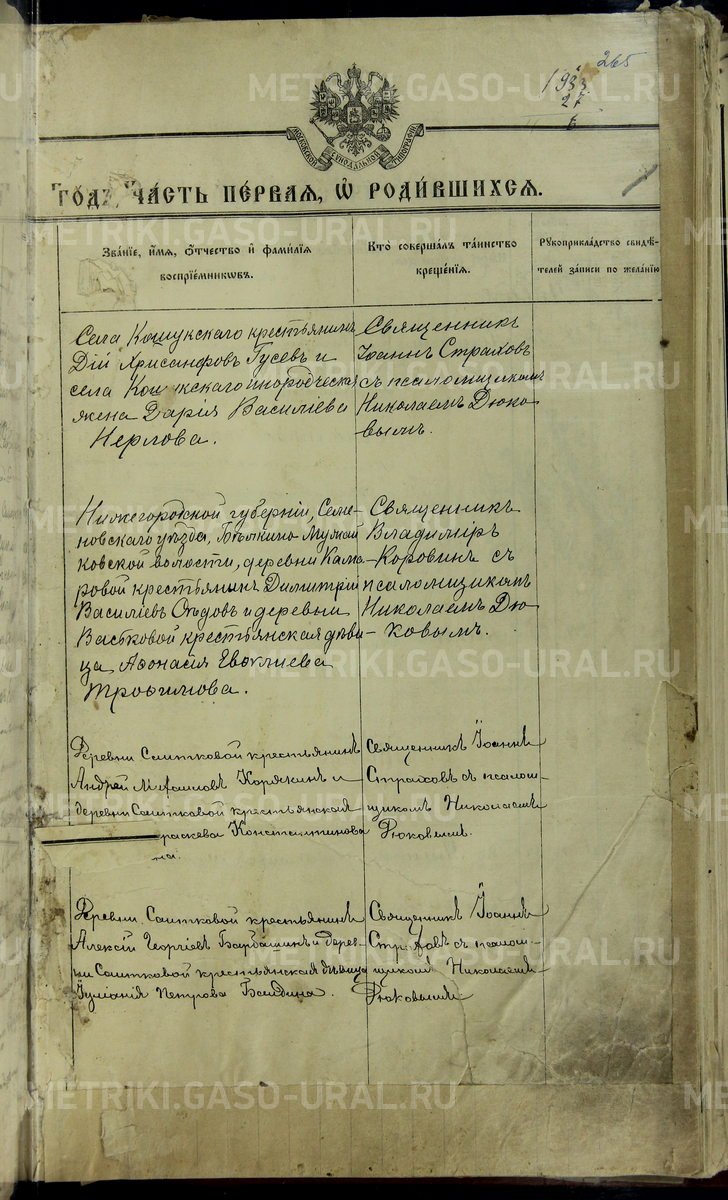 265
1933
27
6
МОСКОВСКОЙ СѴНОДАЛЬНОЙ ТИПОГРАФІИ
Го́дъ, Ча́сть пе́рвая, ѡ роди́вшихся.
Зва́нїе, и҆́мя, ѻ҆́тчество и҆ фами́лїя
воспрїе́мникѡвъ.
Кто̀ соверша́лъ та́инство
креще́нїя.
Рꙋкоприкла́дство свидѣ́-
телей за́писи по жела́нїю
Села Кошукскаго крестьянинъ
Дій Хрисанфовъ Гусевъ и
села Кошукскаго инородческая
жена Дарія Василіева
Нерлова.
Священникъ
Іоаннъ Страховъ
съ псаломщикомъ
Николаемъ Дюко-
вымъ.
Нижегородской губерніи, Семе-
новскаго уѣзда,
ковской волости, деревни Кама-
ровой крестьянинъ Димитрій
Василіевъ и деревни
крестьянская дѣви-
ца Афонасія
Трофимова.
Священникъ
Владиміръ
Коровинъ съ
псаломщикомъ
Николаемъ Дю-
ковымъ.
Деревни Саитковой крестьянинъ
Андрей Михаиловъ Корякинъ и
деревни Саитковой крестьянская
раскева Константинова
на.
Священникъ Іоаннъ
Страховъ съ псалом-
щикомъ Николаемъ
Дюковымъ.
Деревни Саитковой крестьянинъ
Алексій Георгіевъ и дерев-
ни Саитковой крестьянская дѣвица
Іуліанія Петрова
Священникъ Іоаннъ
Страховъ съ псалом-
щикомъ Николаемъ
Дюковымъ
METRIKI.GASO-URAL.RU